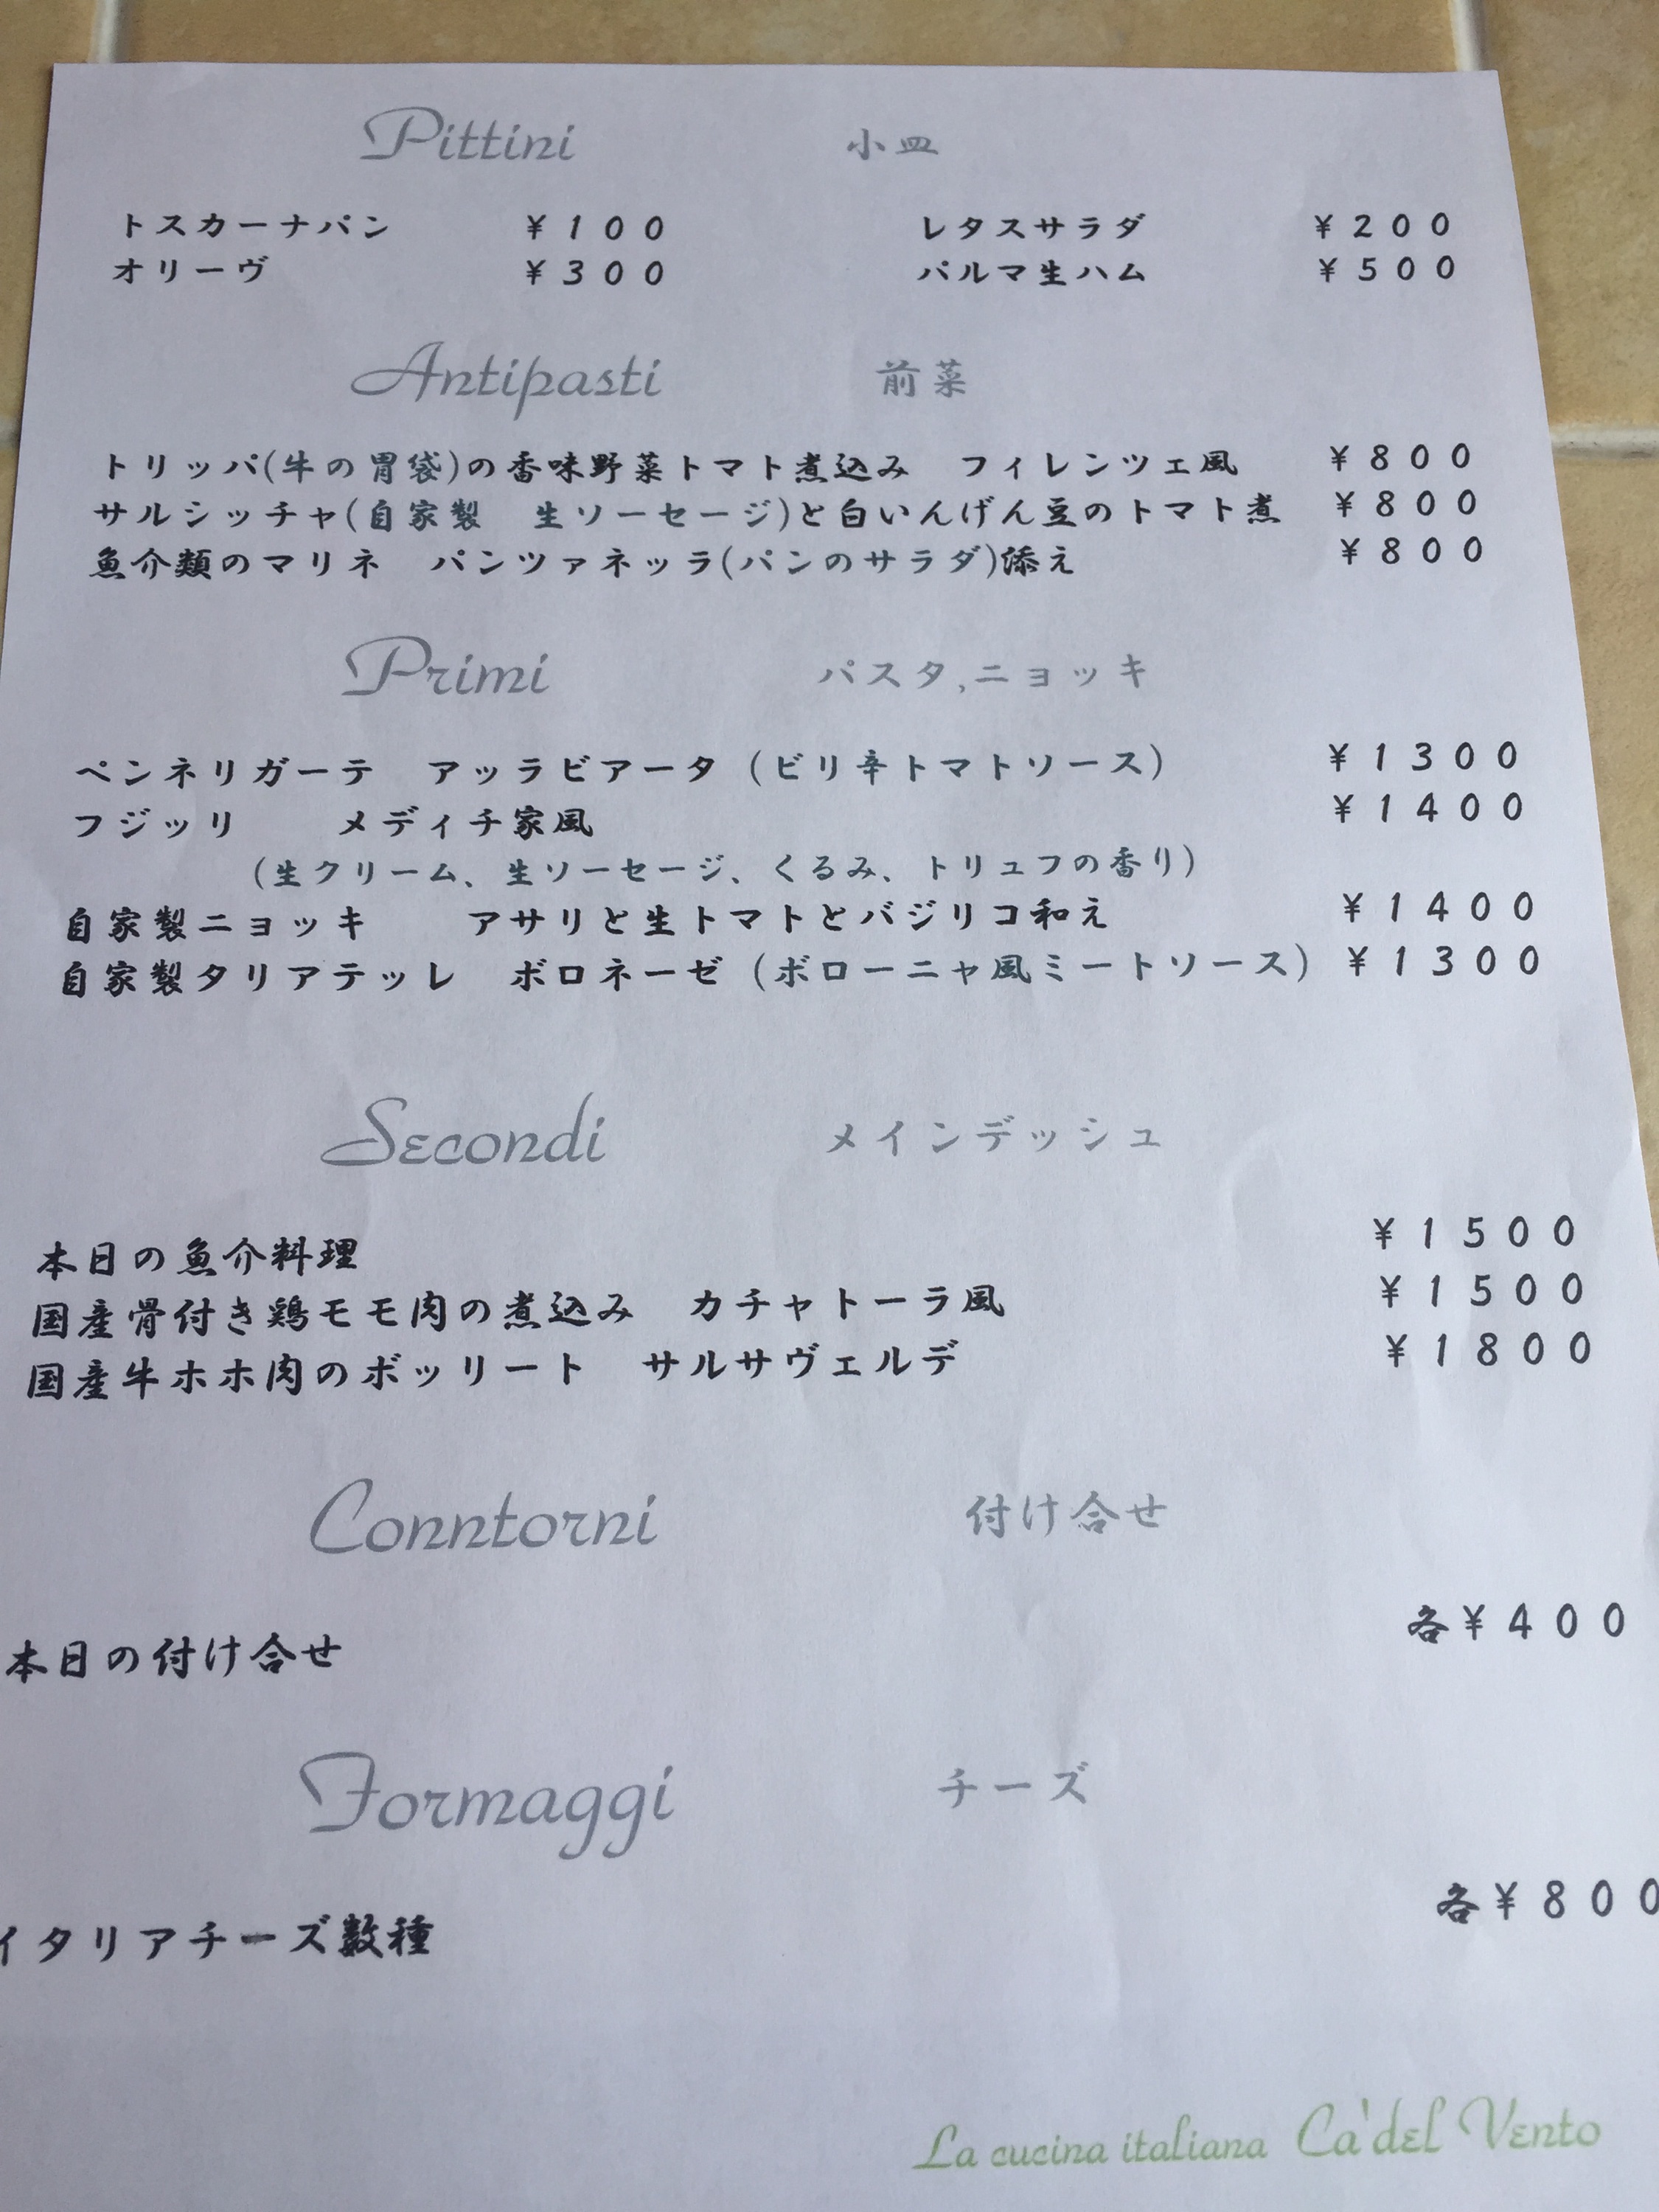 Pittini 小皿
トスカーナパン ¥100 レタスサラダ ¥200
オリーヴ ¥300 パルマ生ハム ¥500
Antipasti 前菜
トリッパ(牛の胃袋)の香味野菜トマト煮込み フィレンツェ風 ¥800
サルシッチャ(自家製 生ソーセージ)と白いんげん豆のトマト煮 ¥800
魚介類のマリネ パンツァネッラ(パンのサラダ)添え ¥800
Primi パスタ,ニョッキ
ペンネリガーテ アッラビアータ (ピリ辛トマトソース) ¥1300
フジッリ メディチ家風 ¥1400
(生クリーム、生ソーセージ、くるみ、トリュフの香り)
自家製ニョッキ アサリと生トマトとバジリコ和え ¥1400
自家製タリアテッレ ボロネーゼ (ボローニャ風ミートソース) ¥1300
Secondi メインデッシュ
本日の魚介料理 ¥1500
国産骨付き鶏モモ肉の煮込み カチャトーラ風 ¥1500
国産牛ホホ肉のボッリート サルサヴェルデ ¥1800
Conntorni 付け合せ
本日の付け合せ 各¥400
Formaggi チーズ
イタリアチーズ数種 各¥800
La cucina italiana Ca'del Vento